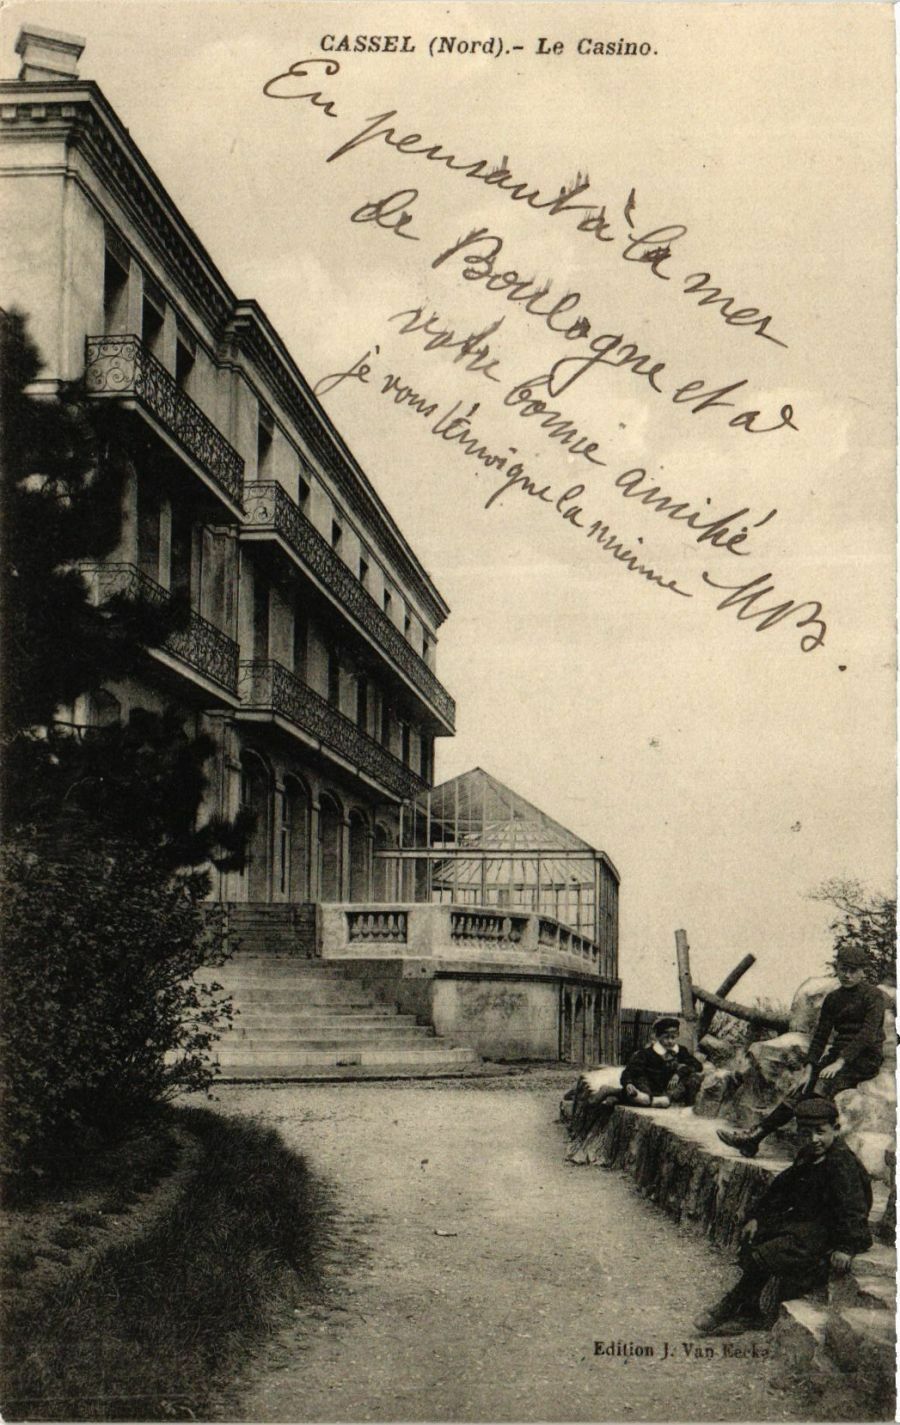 CASSEL (Nord).- Le Casino.
En pensant à la mer
de Boulogne et à
votre bonne amitié
je vous témoigne la mienne
MB.
Edition J. Van Eecke